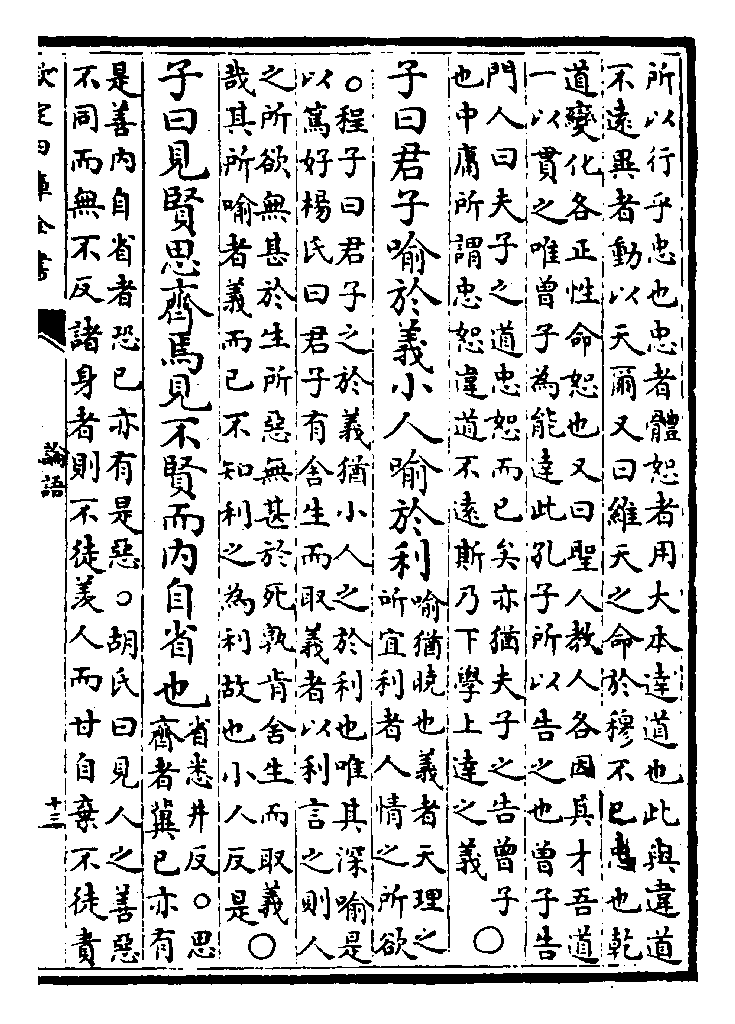 所以行乎忠也忠者體恕者用大本達道也此與違道
不遠異者動以天爾又曰維天之命於穆不已忠也乾
道變化各正性命恕也又曰聖人教人各因其才吾道
一以貫之唯曾子為能達此孔子所以告之也曾子告
門人曰夫子之道忠恕而已矣亦猶夫子之告曾子
也中庸所謂忠恕違道不遠斯乃下學上達之義○
子曰君子喻於義小人喻於利
喻猶曉也義者天理之
所宜利者人情之所欲
○程子曰君子之於義猶小人之於利也唯其深喻是
以篤好楊氏曰君子有舍生而取義者以利言之則人
之所欲無甚於生所惡無甚於死孰肯舍生而取義
哉其所喻者義而已不知利之為利故也小人反是○
子曰見賢思齊焉見不賢而內自省也
省悉井反○思
齊者冀己亦有
是善內自省者恐己亦有是惡○胡氏曰見人之善惡
不同而無不反諸身者則不徒羨人而甘自棄不徒責
欽定四庫全書
論語
十三